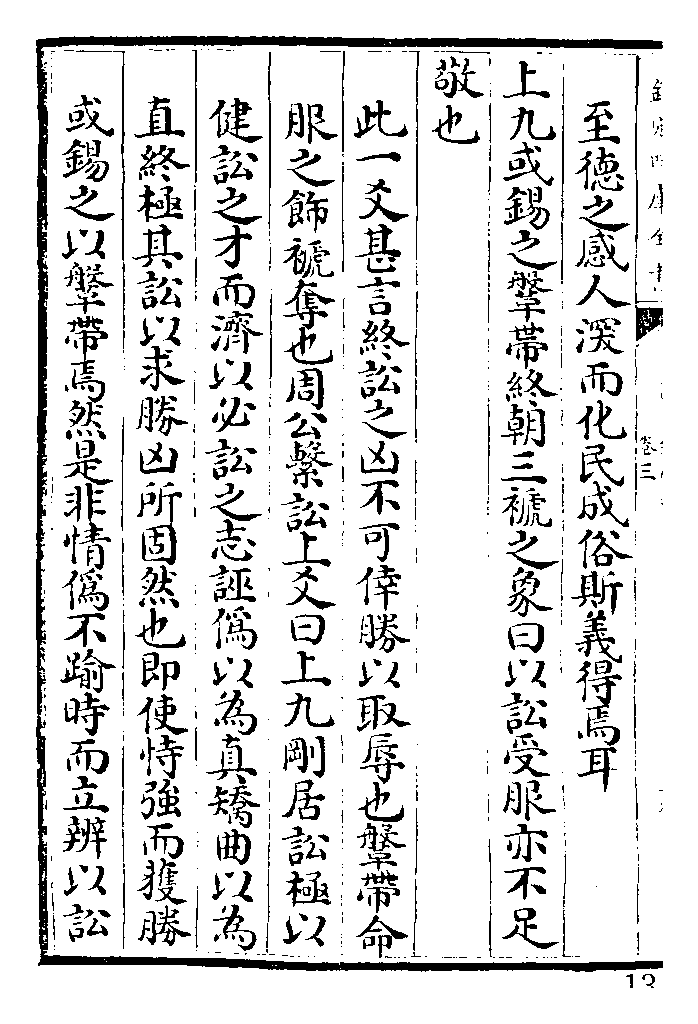 至德之感人深而化民成俗斯義得焉耳
上九或錫之鞶帶終朝三褫之象曰以訟受服亦不足
敬也
此一爻甚言終訟之凶不可倖勝以取辱也鞶帶命
服之飾褫奪也周公繫訟上爻曰上九剛居訟極以
健訟之才而濟以必訟之志誣偽以為真矯曲以為
直終極其訟以求勝凶所固然也即使恃強而獲勝
或錫之以鞶帶焉然是非情偽不踰時而立辨以訟
卷三
13